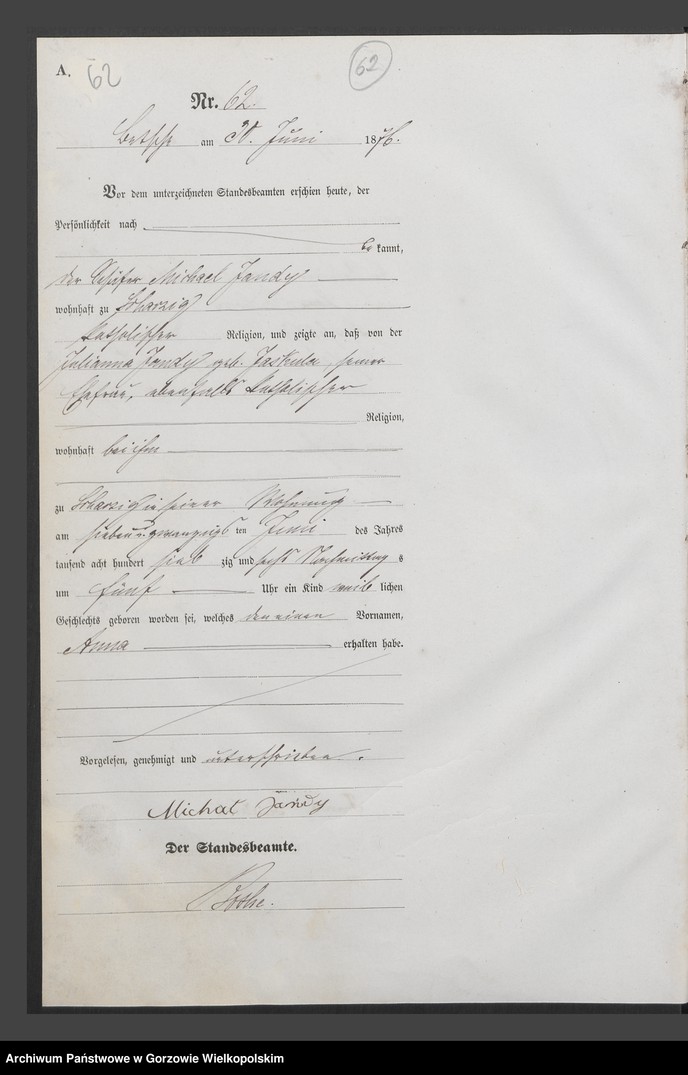 A. 62
62
Nr. 62.
Betsche am 30. Juni 1876.
Vor dem unterzeichneten Standesbeamten erschien heute, der
Persönlichkeit nach
be kannt,
der Michael Jandy
wohnhaft zu Scharzig
katholischer Religion, und zeigte an, daß von der
Julianna Jandy geb. Jaskula, seiner
Ehefrau, ebenfalls katholischer
Religion,
wohnhaft bei ihm
zu Scharzig in seiner Wohnung
am siebenundzwanzigs ten Juni des Jahres
tausend acht hundert sieb zig und sechs Nachmittag s
um fünf Uhr ein Kind weib lichen
Geschlechts geboren worden sei, welches den einen Vornamen,
Anna erhalten habe.
Vorgelesen, genehmigt und unterschrieben.
Michał Jandy
Der Standesbeamte.
Archiwum Państwowe w Gorzowie Wielkopolskim